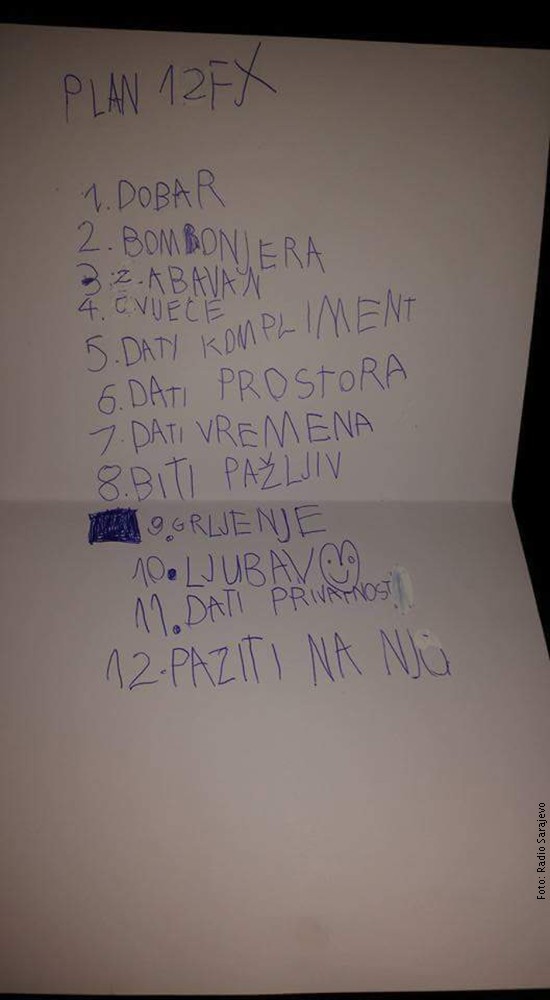 PLAN 12FX
1. DOBAR
2. BOMBONJERA
3. ZABAVAN
4. CVIJEĆE
5. DATI KOMPLIMENT
6. DATI PROSTORA
7. DATI VREMENA
8. BITI PAŽLJIV
9. GRLJENJE
10. LJUBAV
11. DATI PRIVATNOST
12. PAZITI NA NJU
Foto: Radio Sarajevo